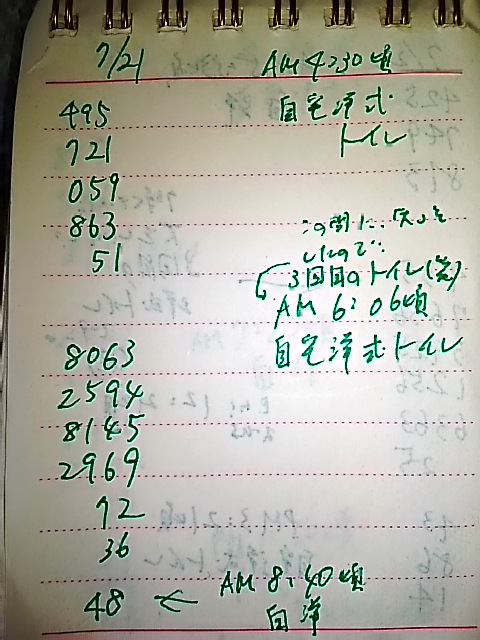 7/21 AM 4:30頃
495 自宅洋式
721 トイレ
059
863
51
この間に、失よを
いたので…
3回目のトイレ(笑)
AM 6:06頃
8063 自宅洋式トイレ
2594
8145
2969
72
36
48 ← AM 8:40頃
自洋